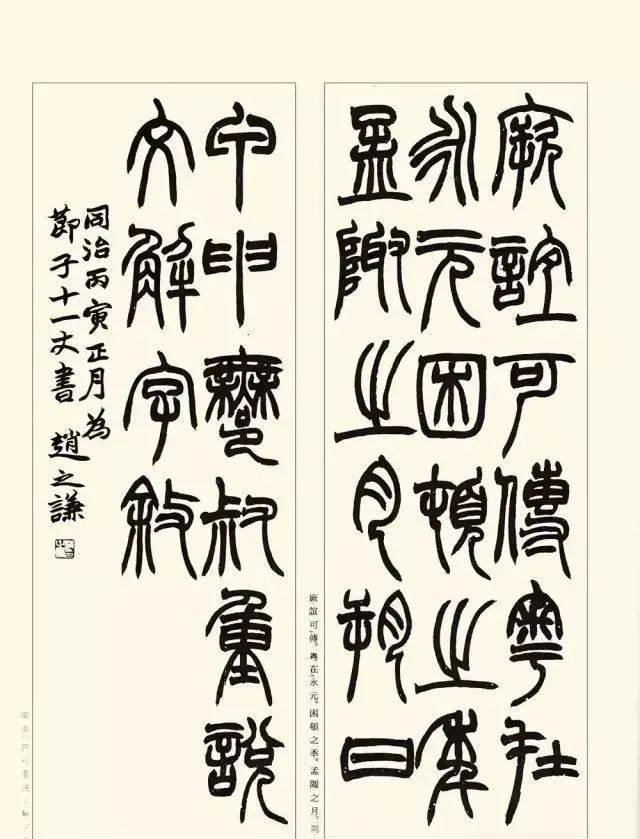 厥誼可傳粵在
永元困頓之年
孟陬之月朔日
厥誼可傳。粵在永元。困頓之季。孟陬之月。朔
甲申鄦叔重說
文解字敘
同治丙寅正月為
節子十一丈書 趙之謙